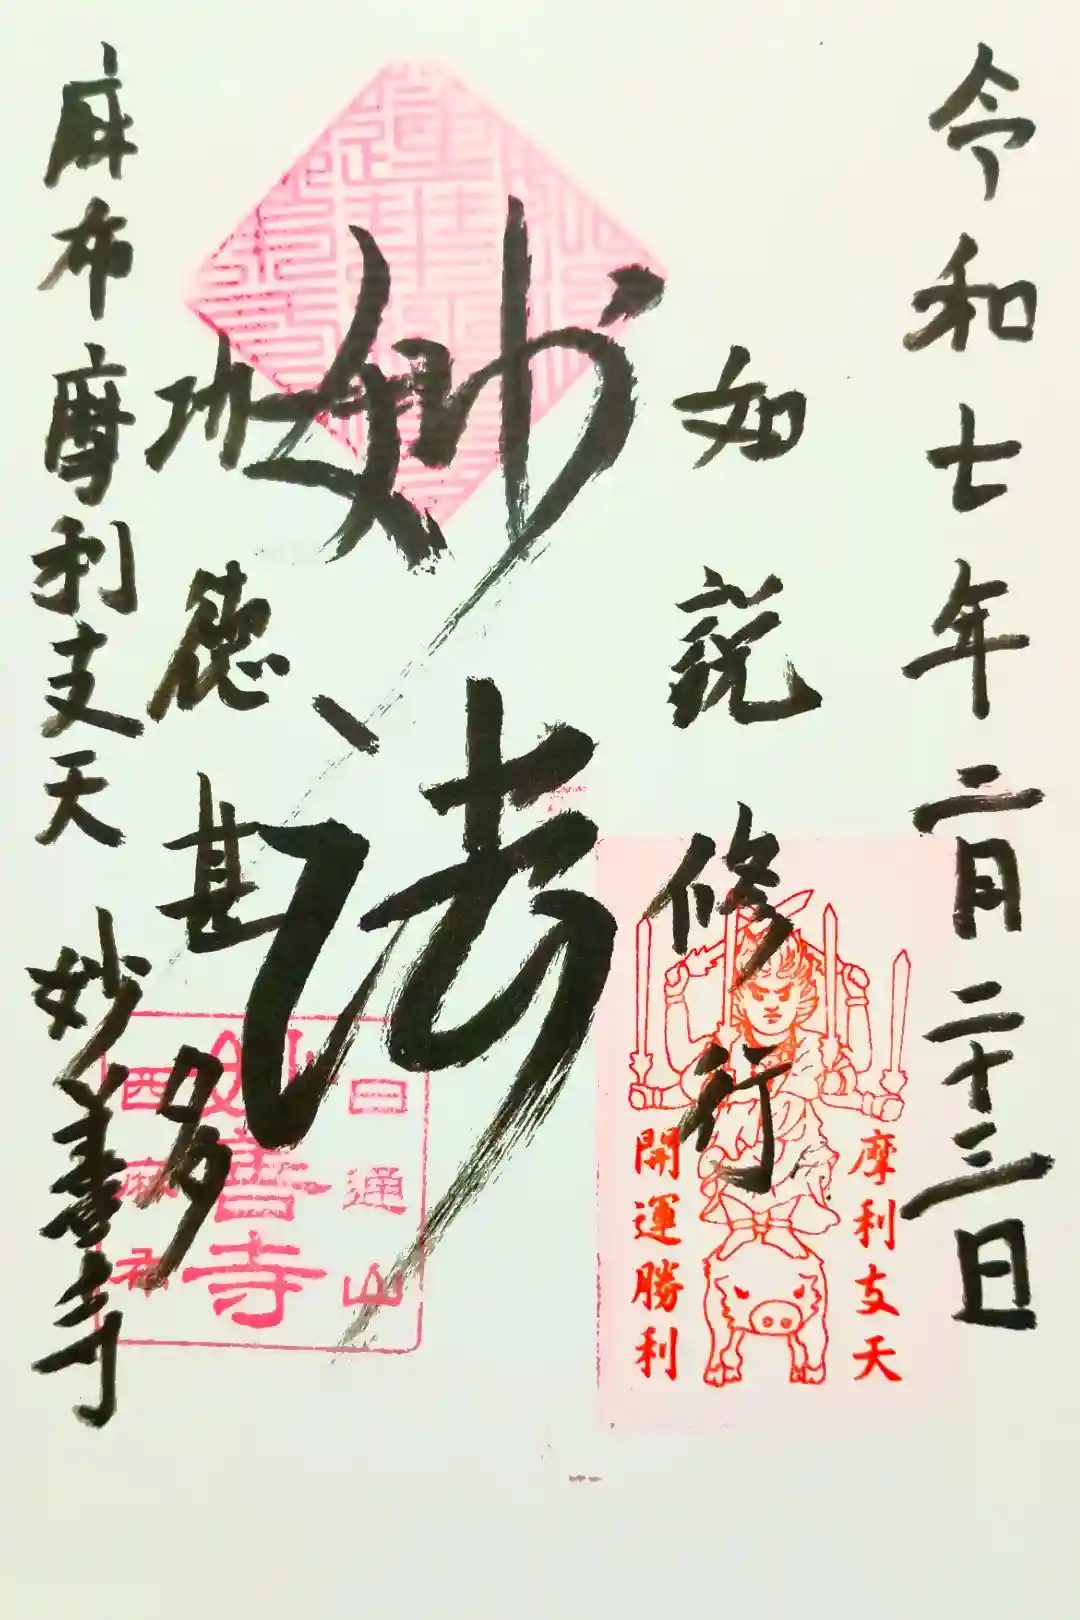 令和七年二月二十三日
如説修行
妙法
功徳甚多
麻布摩利支天 妙善寺
摩利支天
開運勝利
日通山
妙善寺
西麻布